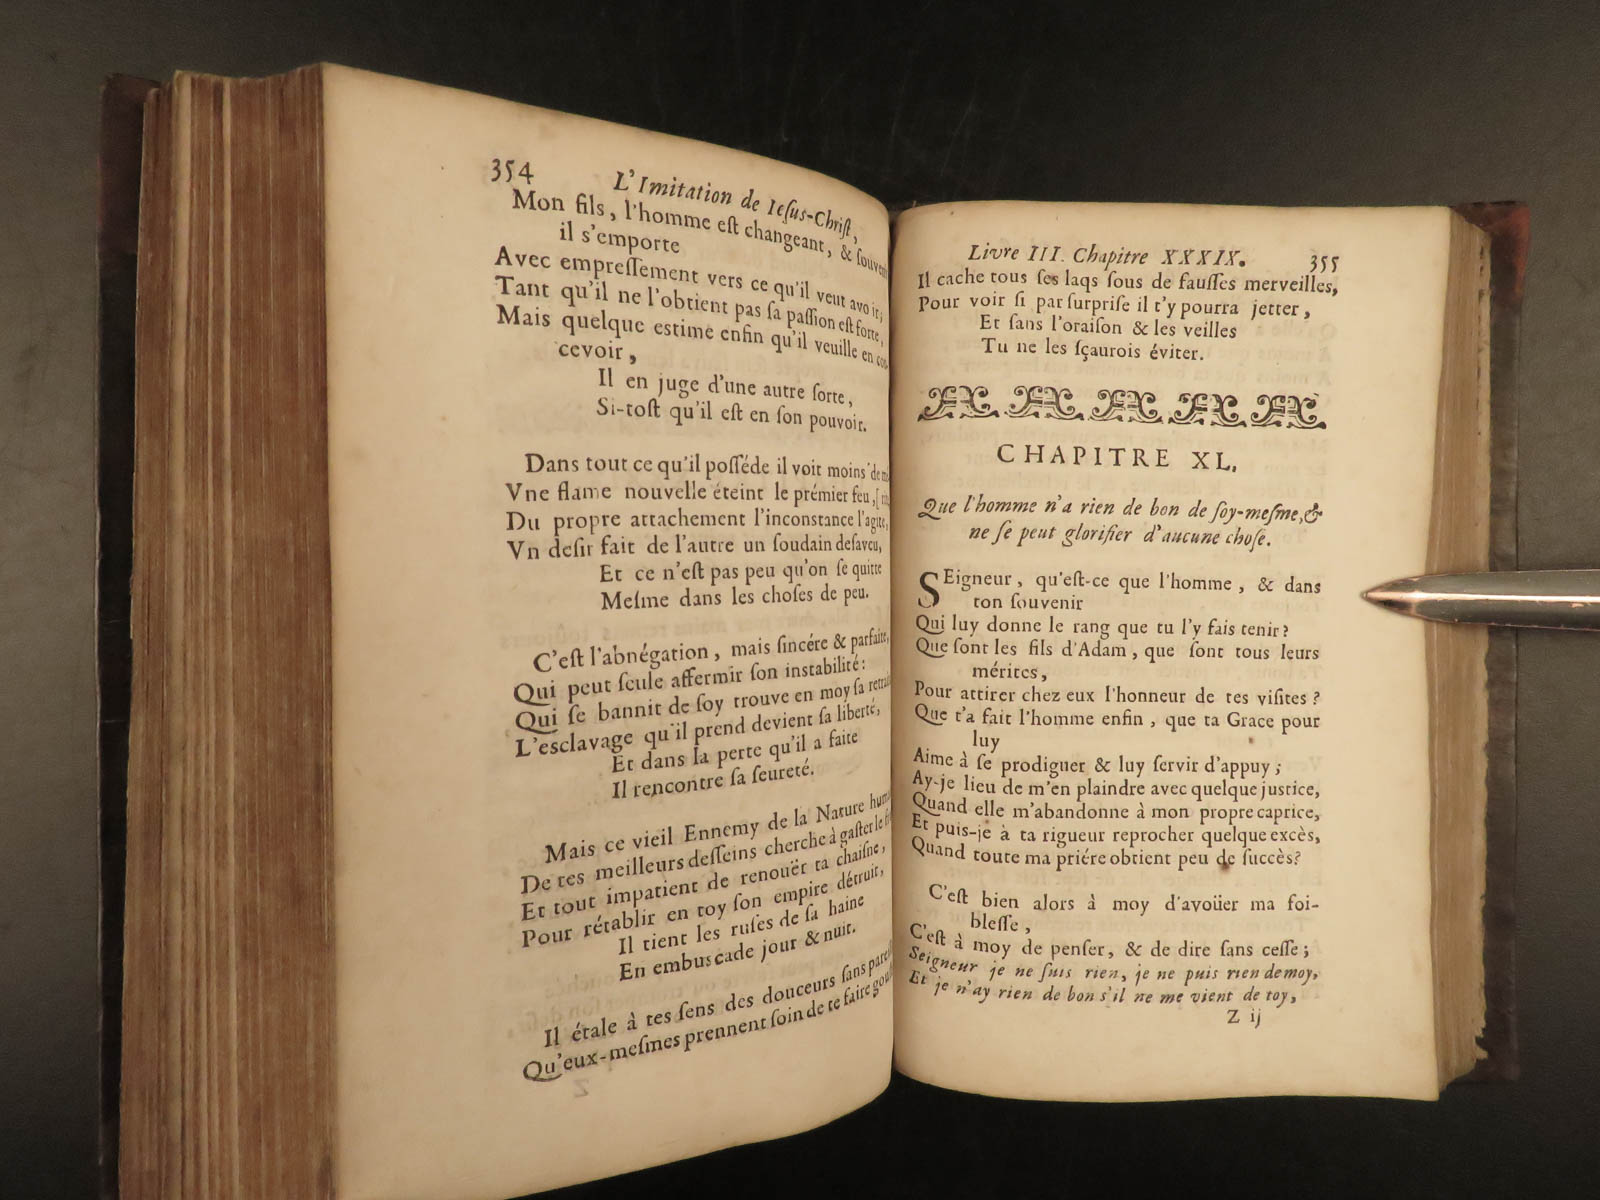 354
L'Imitation de Ieſus-Chriſt,
Mon fils, l'homme eſt changeant, & ſouvent
il s'emporte
Avec empreſſement vers ce qu'il veut avoir;
Tant qu'il ne l'obtient pas ſa paſſion eſt forte,
Mais quelque estime enfin qu'il veuille en con-
cevoir,
Il en juge d'une autre ſorte,
Si-toſt qu'il eſt en ſon pouvoir.
Dans tout ce qu'il poſſéde il voit moins de
Vne flame nouvelle éteint le prémier feu,
Du propre attachement l'inconstance l'agite,
Vn deſir fait de l'autre un ſoudain deſaveu,
Et ce n'eſt pas peu qu'on ſe quitte
Meſme dans les choſes de peu.
C'eſt l'abnégation, mais ſincére & parfaite,
Qui peut ſeule affermir ſon instabilité:
Qui ſe bannit de ſoy trouve en moy ſa
L'esclavage qu'il prend devient ſa liberté,
Et dans la perte qu'il a faite
Il rencontre ſa ſeureté.
Mais ce vieil Ennemy de la Nature
De tes meilleurs deſſeins cherche à gaſter le
Et tout impatient de renouër ta chaiſne,
Pour rétablir en toy ſon empire détruit,
Il tient les ruſes de ſa haine
En embuscade jour & nuit.
Il étale à tes ſens des douceurs ſans
Qu'eux-meſmes prennent ſoin de te faire
Z
Livre III. Chapitre XXXIX.
355
Il cache tous ſes laqs ſous de fauſſes merveilles,
Pour voir ſi par ſurpriſe il t'y pourra jetter,
Et ſans l'oraiſon & les veilles
Tu ne les ſçaurois éviter.
CHAPITRE XL.
Que l'homme n'a rien de bon de ſoy-meſme, &
ne ſe peut glorifier d'aucune choſe.
SEigneur, qu'eſt-ce que l'homme, & dans
ton ſouvenir
Qui luy donne le rang que tu l'y fais tenir?
Que ſont les fils d'Adam, que ſont tous leurs
mérites,
Pour attirer chez eux l'honneur de tes viſites?
Que t'a fait l'homme enfin, que ta Grace pour
luy
Aime à ſe prodiguer & luy ſervir d'appuy;
Ay-je lieu de m'en plaindre avec quelque justice,
Quand elle m'abandonne à mon propre caprice,
Et puis-je à ta rigueur reprocher quelque excès,
Quand toute ma priére obtient peu de ſuccès?
C'eſt bien alors à moy d'avoüer ma foi-
bleſſe,
C'eſt à moy de penſer, & de dire ſans ceſſe;
Seigneur je ne ſuis rien, je ne puis rien de moy,
Et je n'ay rien de bon s'il ne me vient de toy,
Z ij